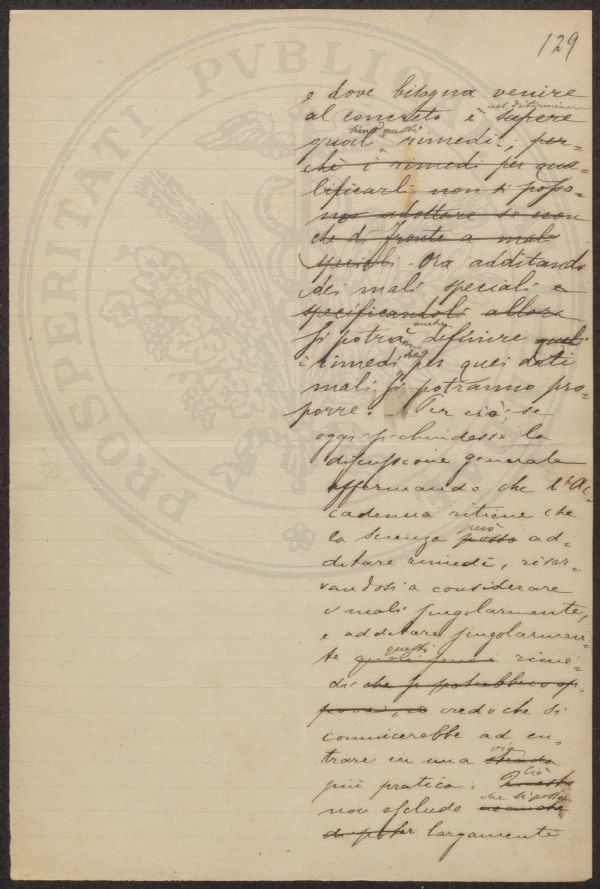 129
e dove bisogna venire
al concreto è nel determinare sapere
quali siano questi rimedi; per-
chè i rimedi per qua-
lificarli non si posso-
no adottare se non
che di fronte a mali
speciali. Ora additando
dei mali speciali e
specificandoli allora
si potrà anche definire quali
i rimedi che per quei dati
mali si potranno pro-
porre. Per ciò, se
oggi si chiudesse la
discussione generale
affermando che l'Ac-
cademia ritiene che
la scienza può possa ad-
ditare rimedi, riser-
vandosi a considerare
i mali singolarmente,
e additare singolarmen-
te questi quali sono i rime-
di che si potrebbero ap-
credo che si
comincerebbe ad en-
trare in una via strada
più pratica. Ciò Questo
non esclude che si possa neanche
di poter largamente
PROSPERITATI PVBLICAE